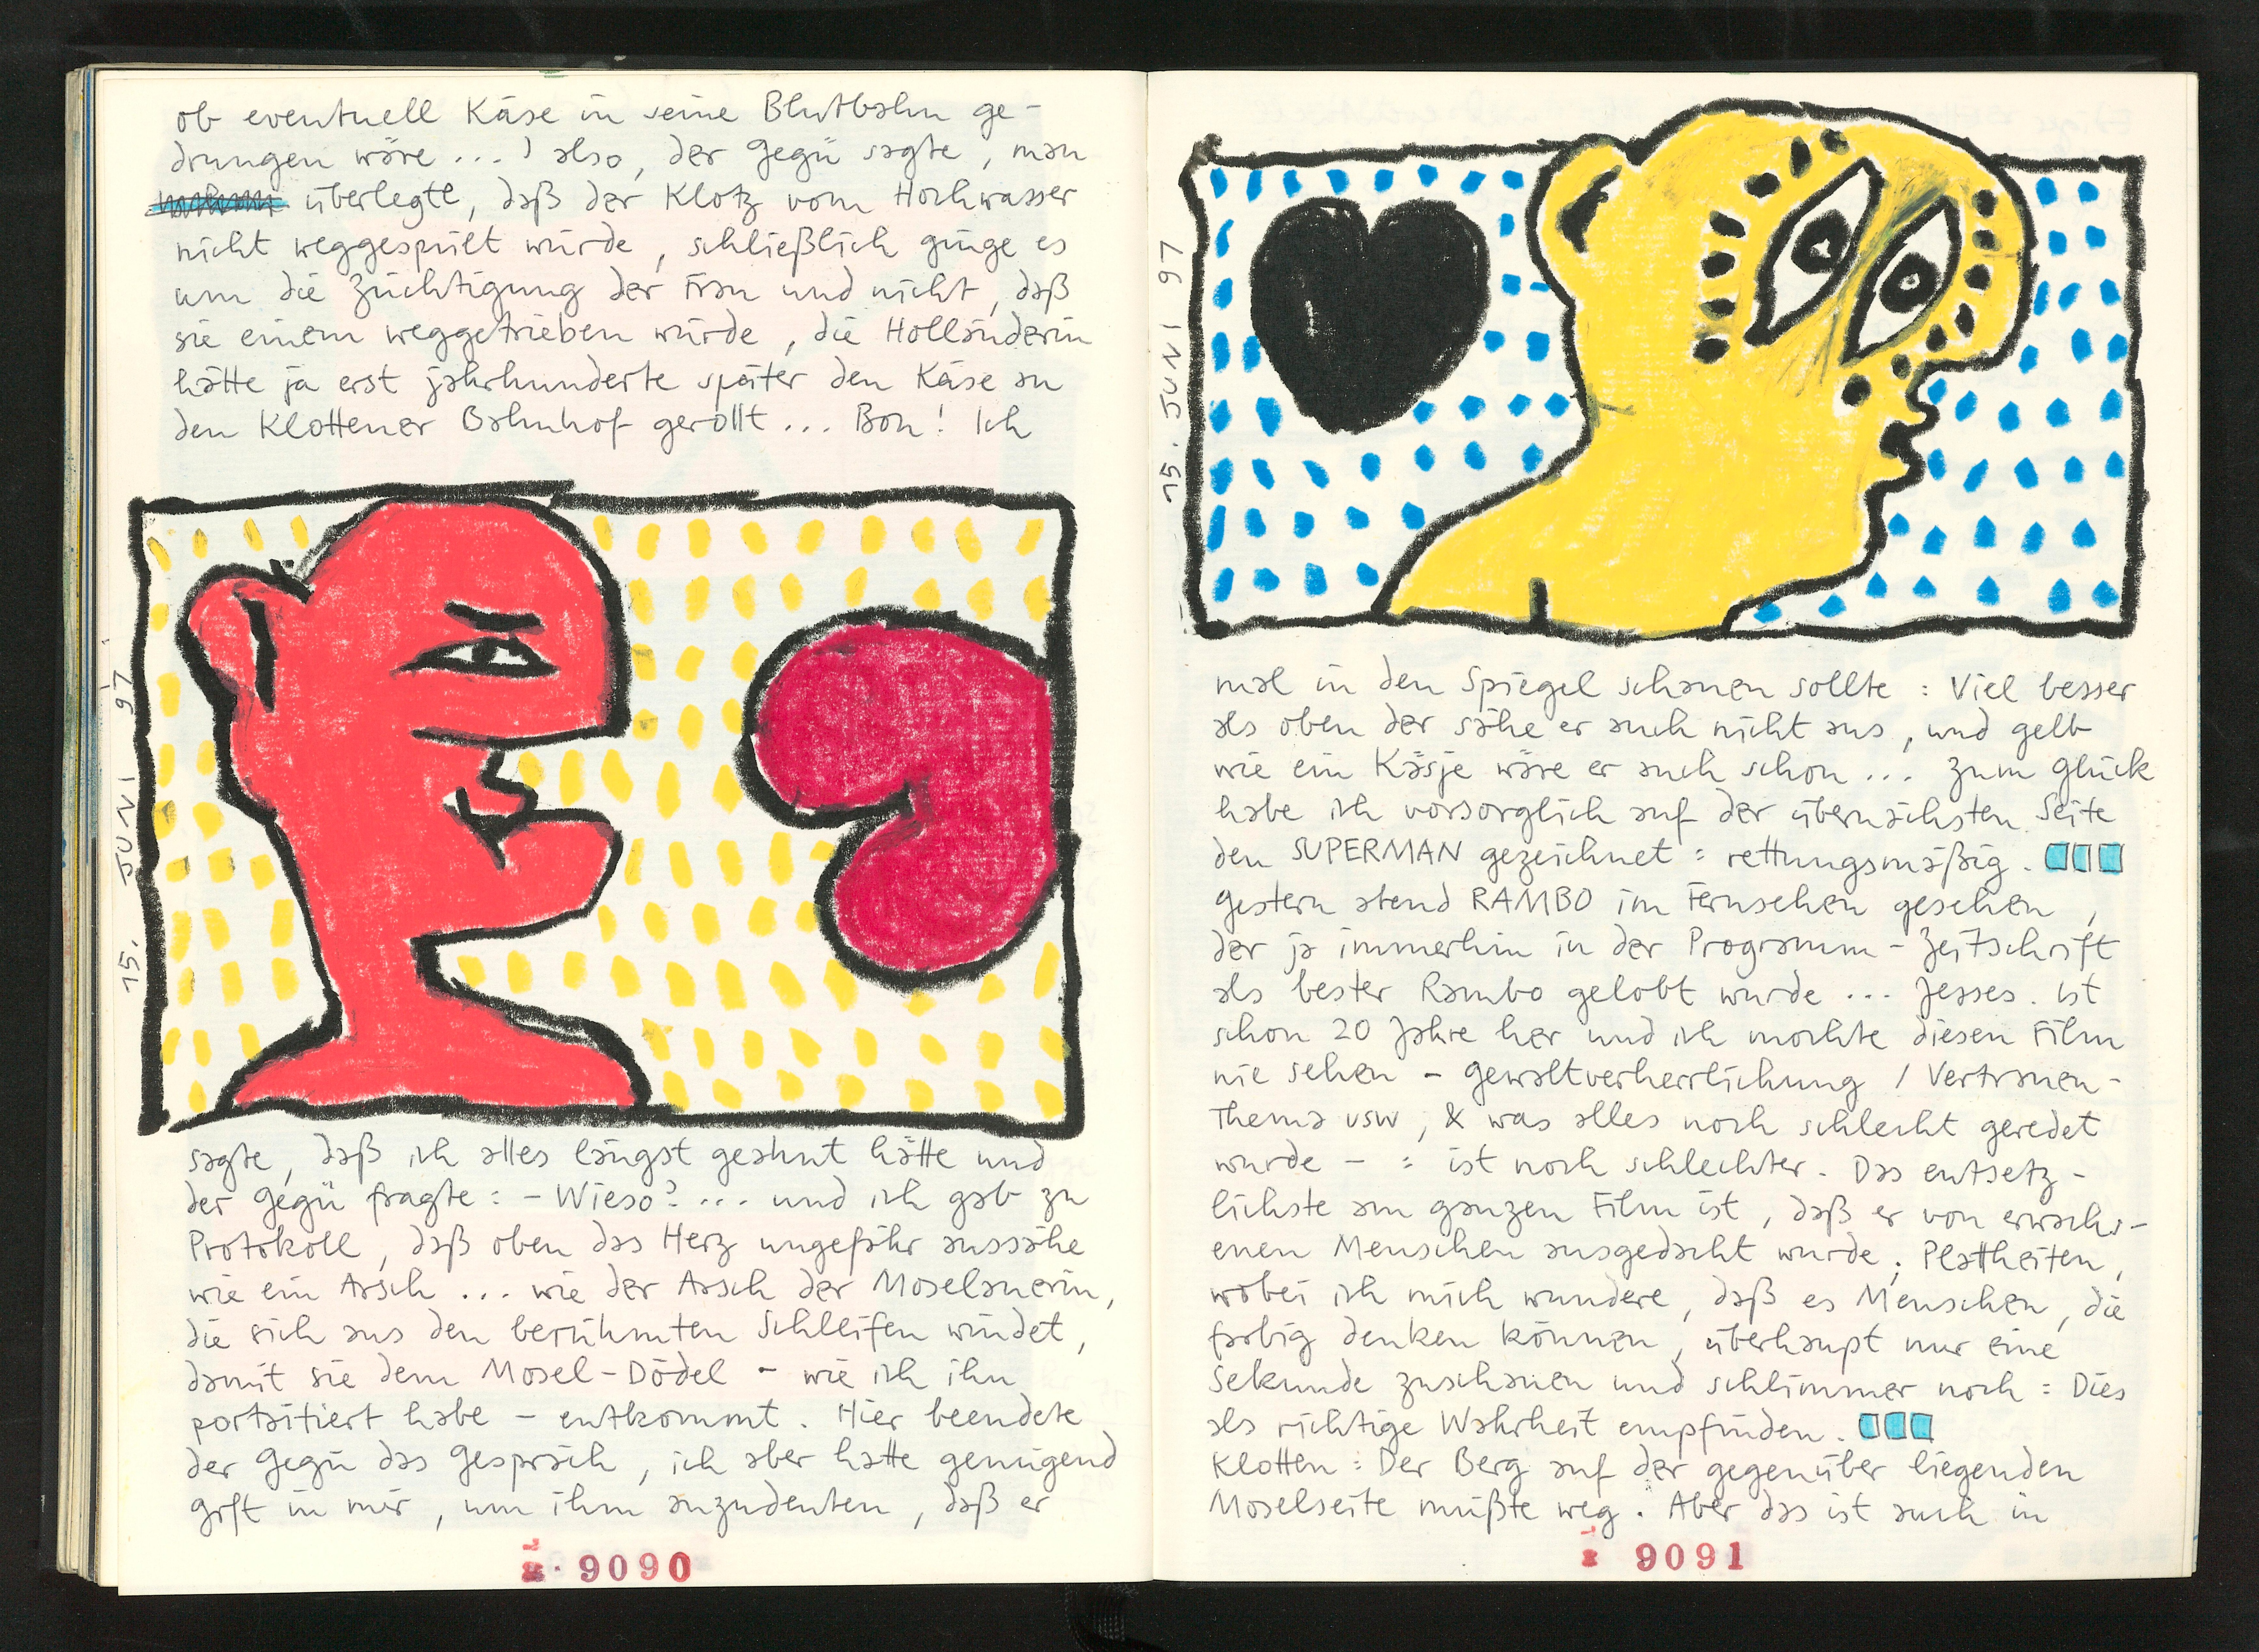 ob eventuell Käse in seine Blutbahn ge-
drungen wäre ...) also, der Gegü sagte, man
überlegte, daß der Klotz vom Hochwasser
nicht weggespült würde, schließlich ginge es
um die Züchtigung der Frau und nicht, daß
sie einem weggetrieben würde, die Holländerin
hätte ja erst jahrhunderte später den Käse an
den Klottener Bahnhof gerollt ... Bon! Ich
15. JUNI 97
sagte, daß ich alles längst geahnt hätte und
der Gegü fragte: - Wieso? ... und ich gab zu
Protokoll, daß oben das Herz ungefähr aussähe
wie ein Arsch ... wie der Arsch der Moselanerin,
die sich aus den berühmten Schleifen windet,
damit sie dem Mosel-Dödel - wie ich ihn
porträtiert habe - entkommt. Hier beendete
der Gegü das Gespräch, ich aber hatte genügend
Gift in mir, um ihm anzudeuten, daß er
9090
15. JUNI 97
mal in den Spiegel schauen sollte: Viel besser
als oben der sähe er auch nicht aus, und gelb
wie ein Käsje wäre er auch schon ... zum Glück
habe ich vorsorglich auf der übernächsten Seite
den SUPERMAN gezeichnet: rettungsmäßig.
Gestern abend RAMBO im Fernsehen gesehen,
der ja immerhin in der Programm-Zeitschrift
als bester Rambo gelobt wurde ... Jesses. ist
schon 20 Jahre her und ich mochte diesen Film
nie sehen - Gewaltverherrlichung / Vertrauen-
Thema usw, & was alles noch schlecht geredet
wurde - : ist noch schlechter. Das entsetz-
lichste am ganzen Film ist, daß er von erwachs-
enen Menschen ausgedacht wurde; Plattheiten,
wobei ich mich wundere, daß es Menschen, die
farbig denken können, überhaupt nur eine
Sekunde zuschauen und schlimmer noch: Dies
als richtige Wahrheit empfinden.
Klotten: Der Berg auf der gegenüber liegenden
Moselseite müßte weg. Aber das ist auch in
9091